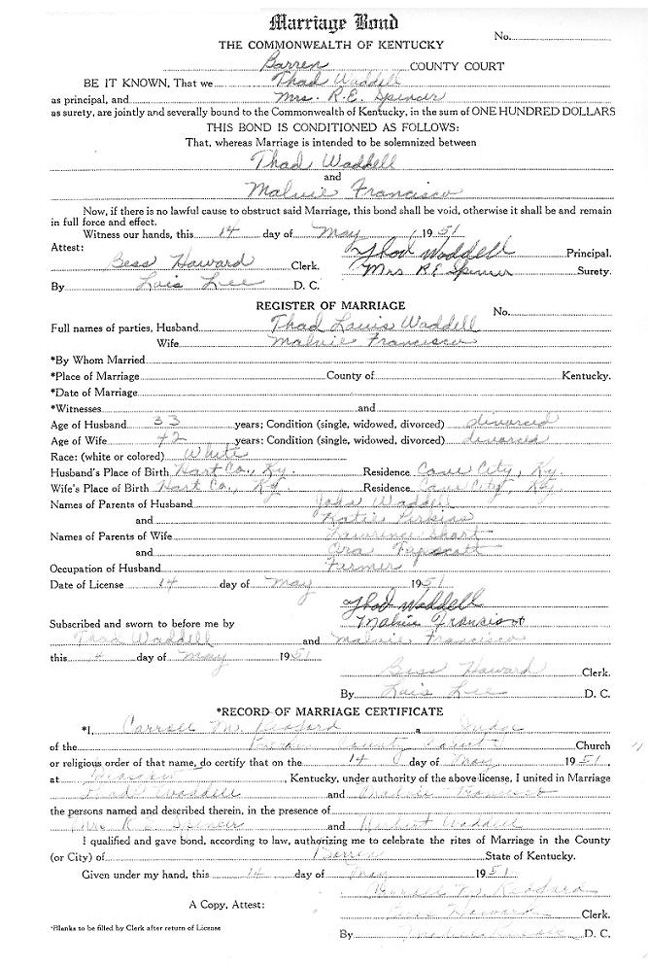 Marriage Bond
No.
THE COMMONWEALTH OF KENTUCKY
Barren COUNTY COURT
BE IT KNOWN, That we Thad Waddell
as principal, and Mrs. R.E. Spencer
as surety, are jointly and severally bound to the Commonwealth of Kentucky, in the sum of ONE HUNDRED DOLLARS
THIS BOND IS CONDITIONED AS FOLLOWS:
That, whereas Marriage is intended to be solemnized between
Thad Waddell
and
Malvie Francisco
Now, if there is no lawful cause to obstruct said Marriage, this bond shall be void, otherwise it shall be and remain
in full force and effect.
Witness our hands, this 14 day of May 1951
Attest: Thod Waddell Principal.
Bess Howard Clerk. Mrs RE Spencer Surety.
By Lois Lee D. C.
REGISTER OF MARRIAGE
No.
Full names of parties, Husband Thad Louis Waddell
Wife Malvie Francisco
*By Whom Married
*Place of Marriage County of Kentucky.
*Date of Marriage
*Witnesses and
Age of Husband 33 years; Condition (single, widowed, divorced) divorced
Age of Wife 42 years; Condition (single, widowed, divorced) divorced
Race: (white or colored) White
Husband's Place of Birth Hart Co., Ky. Residence Cave City, Ky.
Wife's Place of Birth Hart Co., Ky. Residence Cave City, Ky.
Names of Parents of Husband John Waddell
and Katie Perkins
Names of Parents of Wife Lawrence Short
and Ora
Occupation of Husband Farmer
Date of License 14 day of May 1951
Thod Waddell
Subscribed and sworn to before me by Malvie Francisco
Thad Waddell and Malvie Francisco
this 14 day of May 1951
Bess Howard Clerk.
By Lois Lee D. C.
*RECORD OF MARRIAGE CERTIFICATE
*I, Carroll M. Redford a Judge
of the Barren County Court Church
or religious order of that name, do certify that on the 14 day of May 1951,
at Glasgow, Kentucky, under authority of the above license, I united in Marriage
Thad Waddell and Malvie Francisco
the persons named and described therein, in the presence of
Mrs R E Spencer and Herbert Waddell
I qualified and gave bond, according to law, authorizing me to celebrate the rites of Marriage in the County
(or City) of Barren State of Kentucky.
Given under my hand, this 14 day of May 1951
Carroll M. Redford
A Copy, Attest: Bess Howard Clerk.
*Blanks to be filled by Clerk after return of License
By D. C.